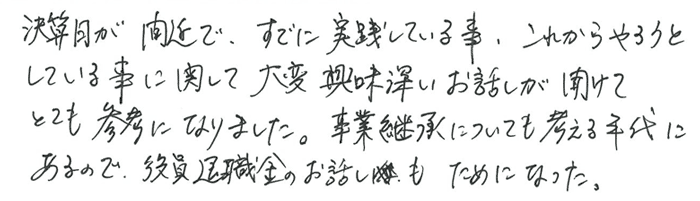 決算月が間近で、すでに実践している事、これからやろうと
している事に関して大変興味深いお話しが聞けて
とても参考になりました。事業継承についても考える年代に
あるので、役員退職金のお話しもためになった。